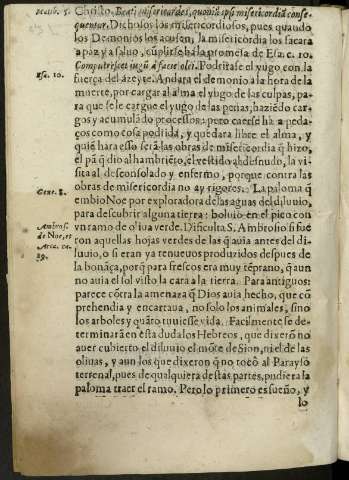 Matth. 5.
Christo, Beati misericordes, quoniã ipsi misericordiã conse-
quentur. Dichosos los misericordiosos, pues quando
los Demonios los acusen, la misericordia los sacara
a paz y a saluo, cũplirseha la promesa de Esa. c. 10.
Esa. 10.
Computrescet iugũ à facie olei. Podrirase el yugo con la
fuerça del azeyte. Andara el demonio a la hora de la
muerte, por cargar al alma el yugo de las culpas, pa-
ra que se le cargue el yugo de las penas, haziẽdo car-
gos y acumulãdo processos: pero caerse ha a peda-
ços como cosa podrida, y quedara libre el alma, y
quiẽ hara esso serã las obras de misericordia q̃ hizo,
el pã q̃ dio al hambriẽto, el vestido al desnudo, la vi-
sita al desconsolado y enfermo, porque contra las
obras de misericordia no ay rigores. La paloma q̃
Gene. 8.
embio Noe por exploradora de las aguas del diluuio,
para descubrir alguna tierra: boluio en el pico con
Ambros. de Noe, et Arca. ca. 19.
vn ramo de oliua verde. Dificulta S. Ambrosio si fue
ron aquellas hojas verdes de las q̃ auia antes del di-
luuio, o si eran ya renueuos produzidos despues de
la bonãça, porq̃ para frescos era muy tẽprano, q̃ aun
no auia el sol visto la cara a la tierra. Para antiguos:
parece cõtra la amenaza q̃ Dios auia hecho, que cõ
prehendia y encartaua, no solo los animales, sino
los arboles y quãto tuuiesse vida. Facilmente se de-
terminarã en esta duda los Hebreos, que dixerõ no
auer cubierto el diluuio el mõte de Sion, ni el de las
oliuas, y aun los que dixeron q̃ no tocò al Parayso
terrenal, pues de qualquiera destas partes, pudiera la
paloma traer el ramo. Pero lo primero es sueño, y
lo